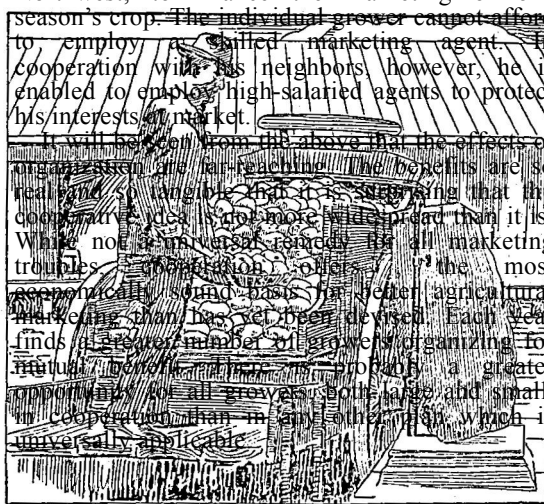 season's crop. The individual grower cannot affor
to employ a skilled marketing agent. I
cooperation with his neighbors, however, he i
enabled to employ high-salaried agents to protec
his interests at market.
It will be seen from the above that the effects o
organization are far-reaching. The benefits are so
real and so tangible that it is surprising that th
cooperative idea is not more widespread than it is
While not a universal remedy for all marketing
troubles, cooperation offers the mos
economically sound basis for better agricultura
marketing than has yet been devised. Each yea
finds a greater number of growers organizing fo
mutual benefit. There is probably a greate
opportunity for all growers, both large and small
in cooperation than in any other plan which i
universally applicable.